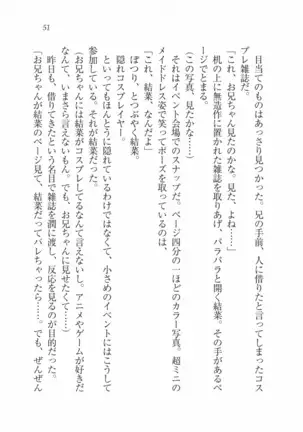 51
目当てのものはあっさり見つかった。兄の手前、人に借りたと言ってしまったコス
プレ雑誌だ。
「これ、お兄ちゃん見たのかな。見た、よね⋯⋯」
机の上に無造作に置かれた雑誌を取りあげ、パラパラと開く結菜。その手があるペ
ージでとまる。
（この写真、見たかな⋯⋯）
それはイベント会場でのスナップだ。ページ四分の一ほどのカラー写真。超ミニの
メイドドレス姿で笑ってポーズを取っているのは、
「これ、結菜、なんだよ」
ぽつり、とつぶやく結菜。
隠れコスプレイヤー。
といってもほんとうに隠れているわけではなくて、小さめのイベントにはこうして
参加している。それが結菜だった。
（お兄ちゃんには結菜がコスプレしてるなんて言えないし。アニメやゲームが好きだ
なんて、いまさら言えないもん。でも、お兄ちゃんに見せたくて⋯⋯）
昨日も、借りてきたという名目で雑誌を潤に渡し、反応を見るのが目的だった。
（お兄ちゃんが結菜のページ見て、結菜だってバレちゃったら⋯⋯。でも、ぜんぜん